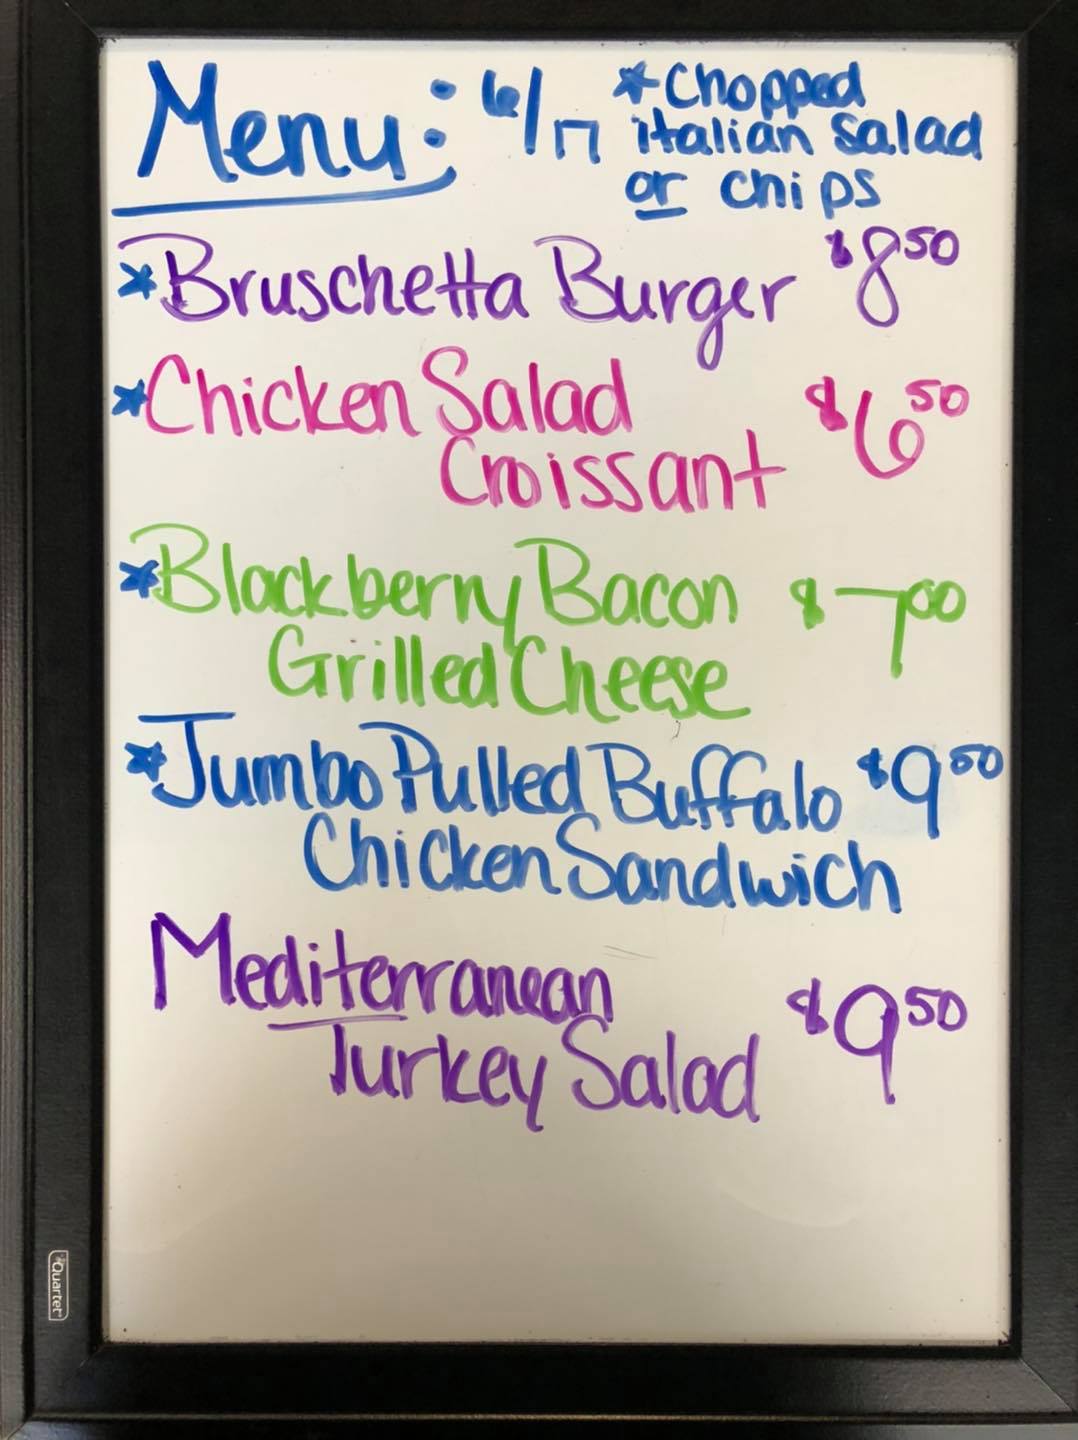 Menu: 6/17
*Chopped
italian salad
or chips
*Bruschetta Burger $8.50
*Chicken Salad
Croissant $6.50
*Blackberry Bacon $7.00
Grilled Cheese
*Jumbo Pulled Buffalo $9.50
Chicken Sandwich
Mediterranean
Turkey Salad $9.50
Quartet